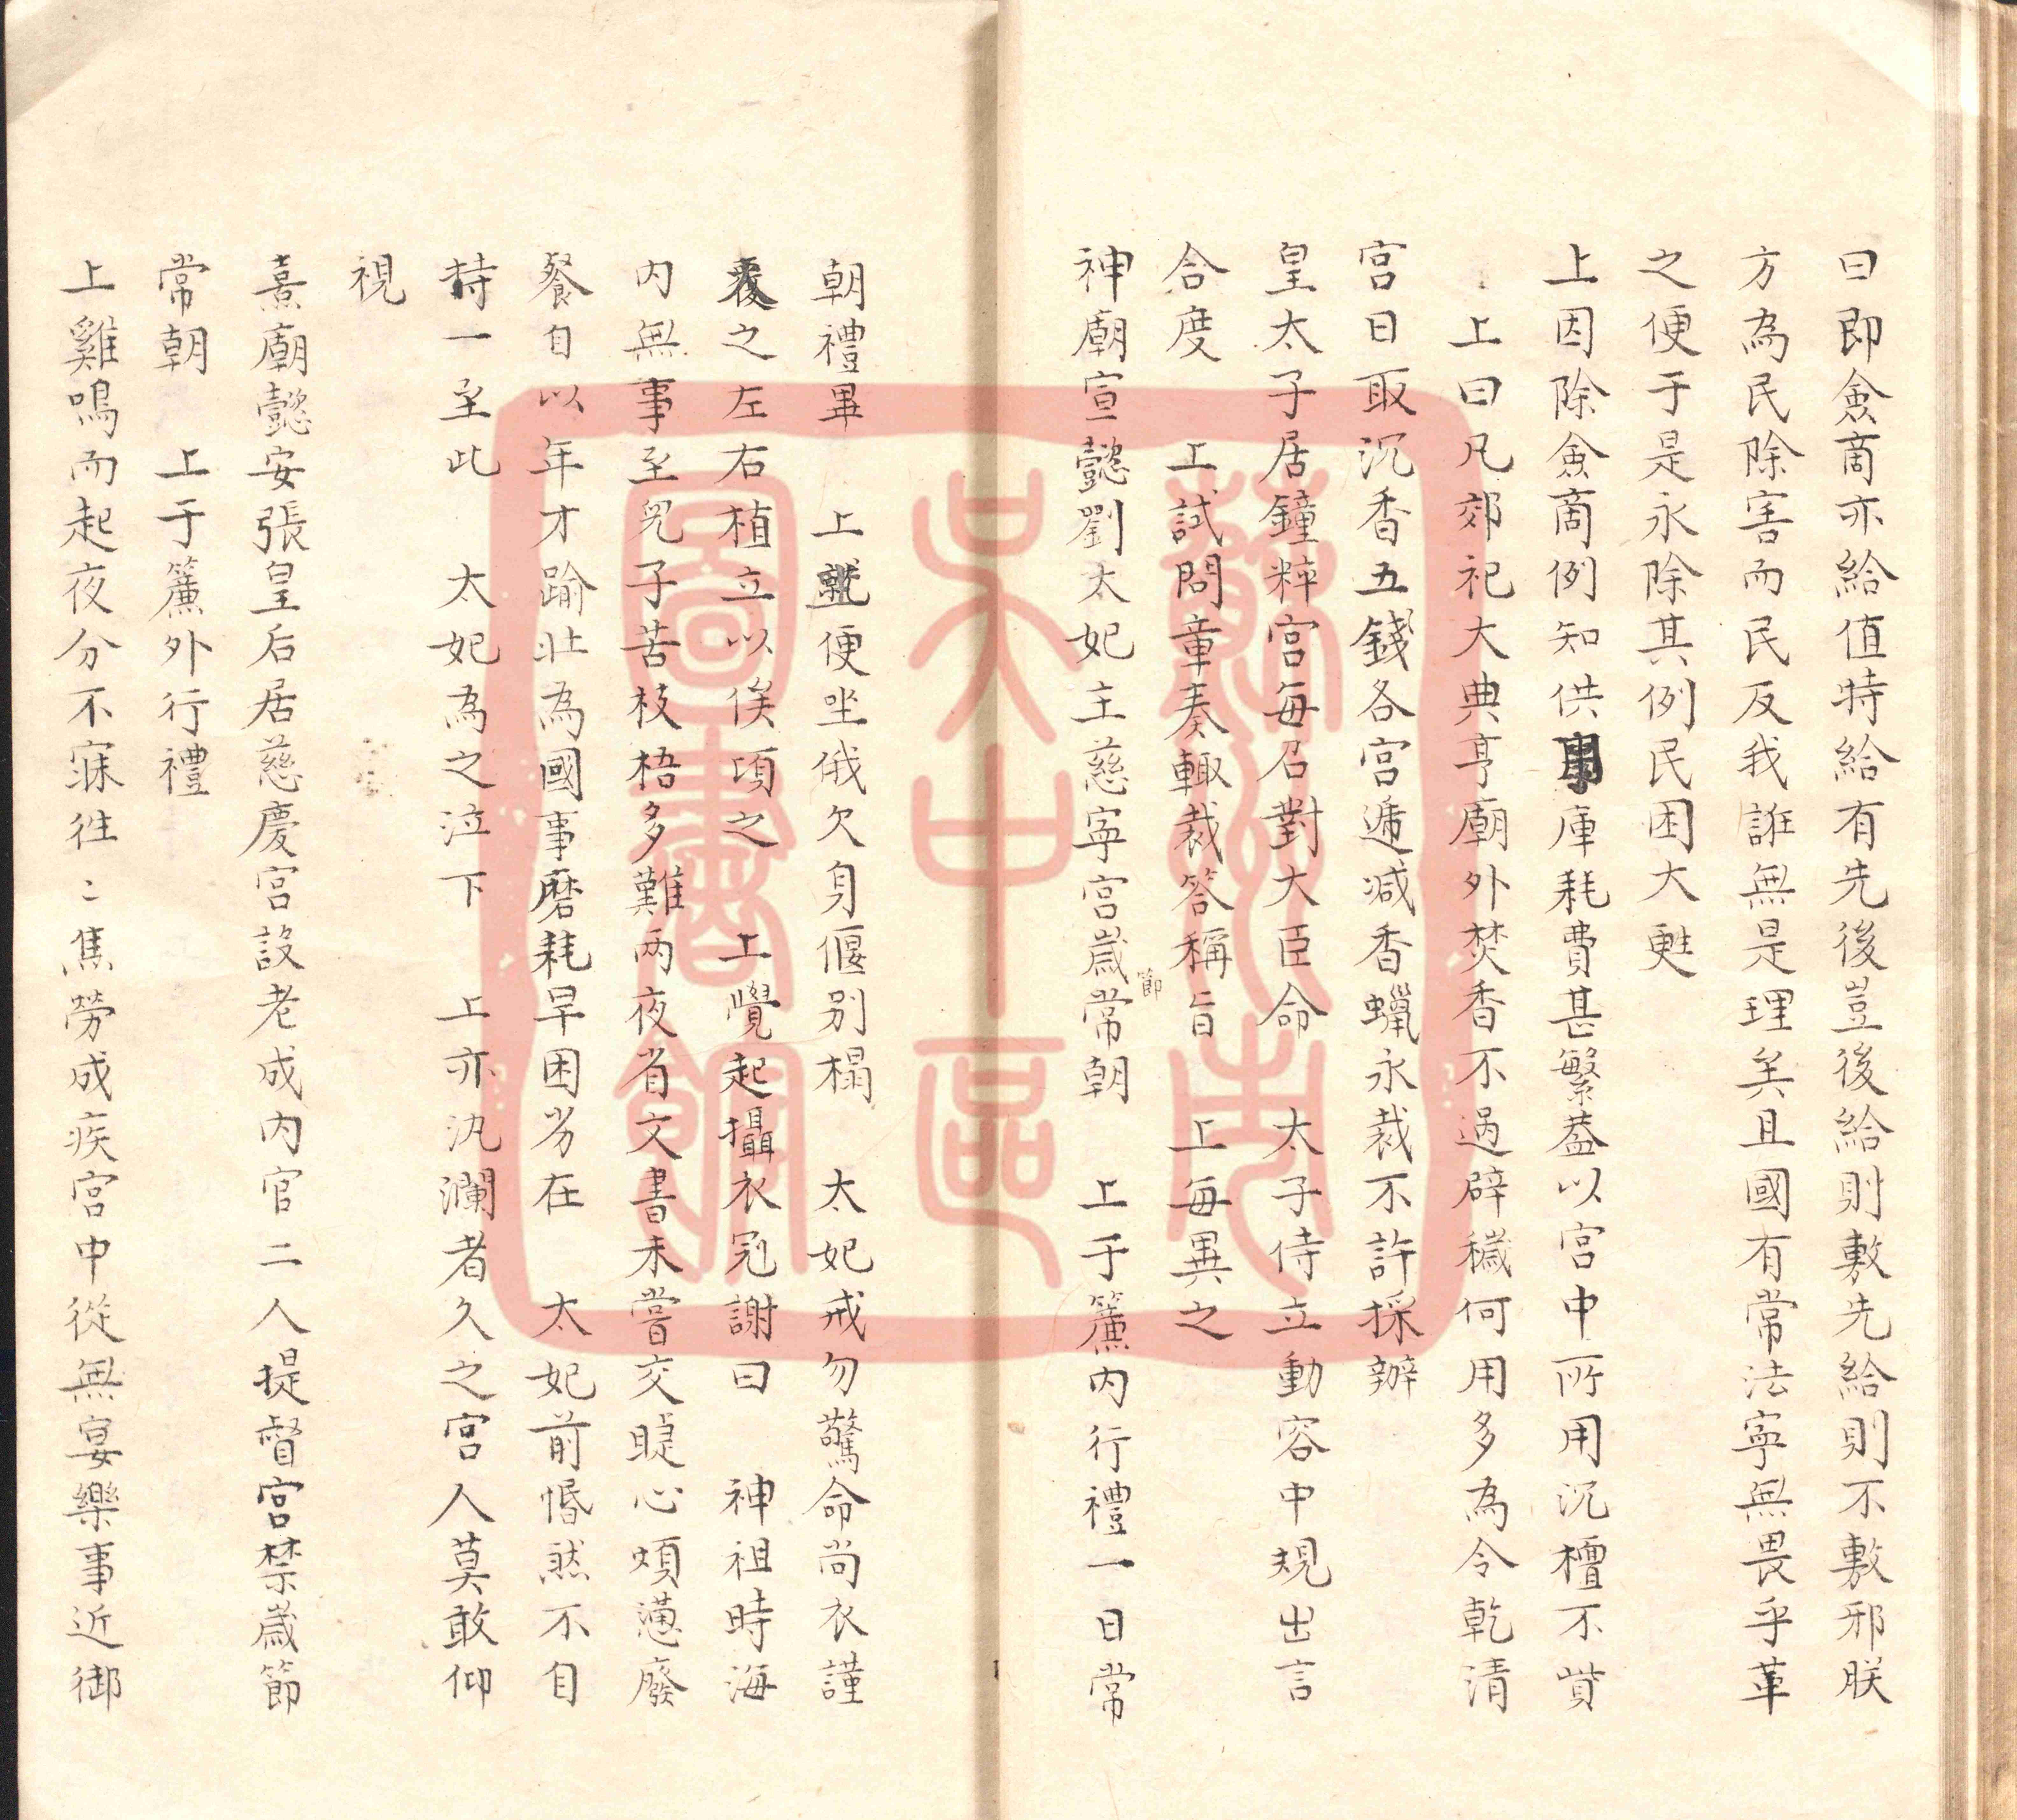 曰即僉商亦給值特給有先後豈後給則敷先給則不敷邪朕
方為民除害而民反我誑無是理矣且國有常法寧無畏乎革
之便于是永除其例民困大甦
上因除僉商例知供事庫耗費甚繁蓋以宮中所用沉檀不貲
上曰凡郊祀大典享廟外焚香不過辟穢何用多為令乾清
宮日取沉香五錢各宮遞減香蠟永裁不許採辦
皇太子居鐘粹宮每召對大臣命　太子侍立動容中規出言
合度　上試問章奏輙裁答稱旨　上每異之
神廟宣懿劉太妃主慈寧宮歲節常朝　上于簾內行禮一日常
朝禮畢　上就便坐俄欠身偃別榻　太妃戒勿驚命尚衣謹
覆之左右植立以俟項之　上覺起攝衣冠謝曰　神祖時海
內無事至兒子苦枝梧多難兩夜省文書未嘗交睫心煩懑廢
餐自以年才踰壯為國事磨耗早困劣在　太妃前惛然不自
持一至此　太妃為之泣下　上亦汍瀾者久之宮人莫敢仰
視
熹廟懿安張皇后居慈慶宮設老成內官二人提督宮禁歲節
常朝　上于簾外行禮
上雞鳴而起夜分不寐徃〻焦勞成疾宮中從無宴樂事近御
蘇州市
吳中區
圖書館